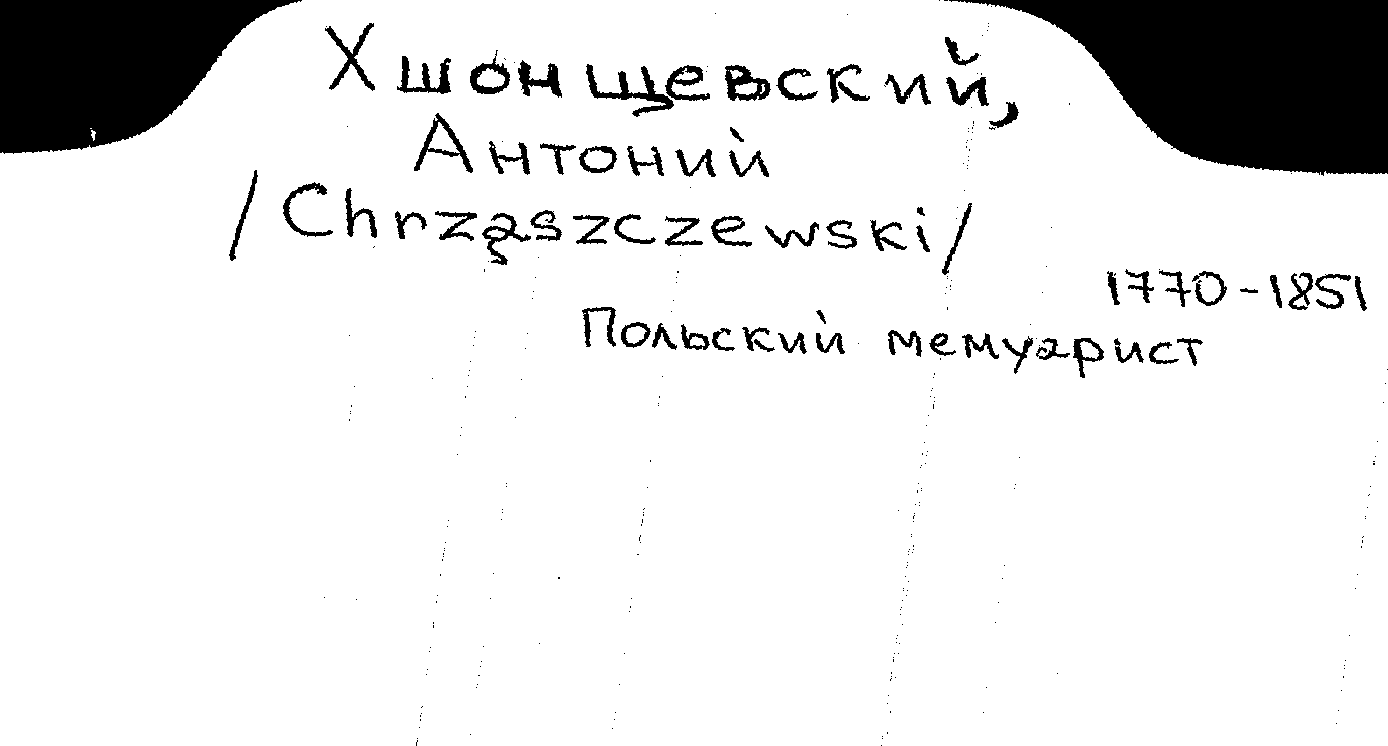 Хшонщевский,
Антоний
/Chrząszczewski/
1770-1851
Польский мемуарист